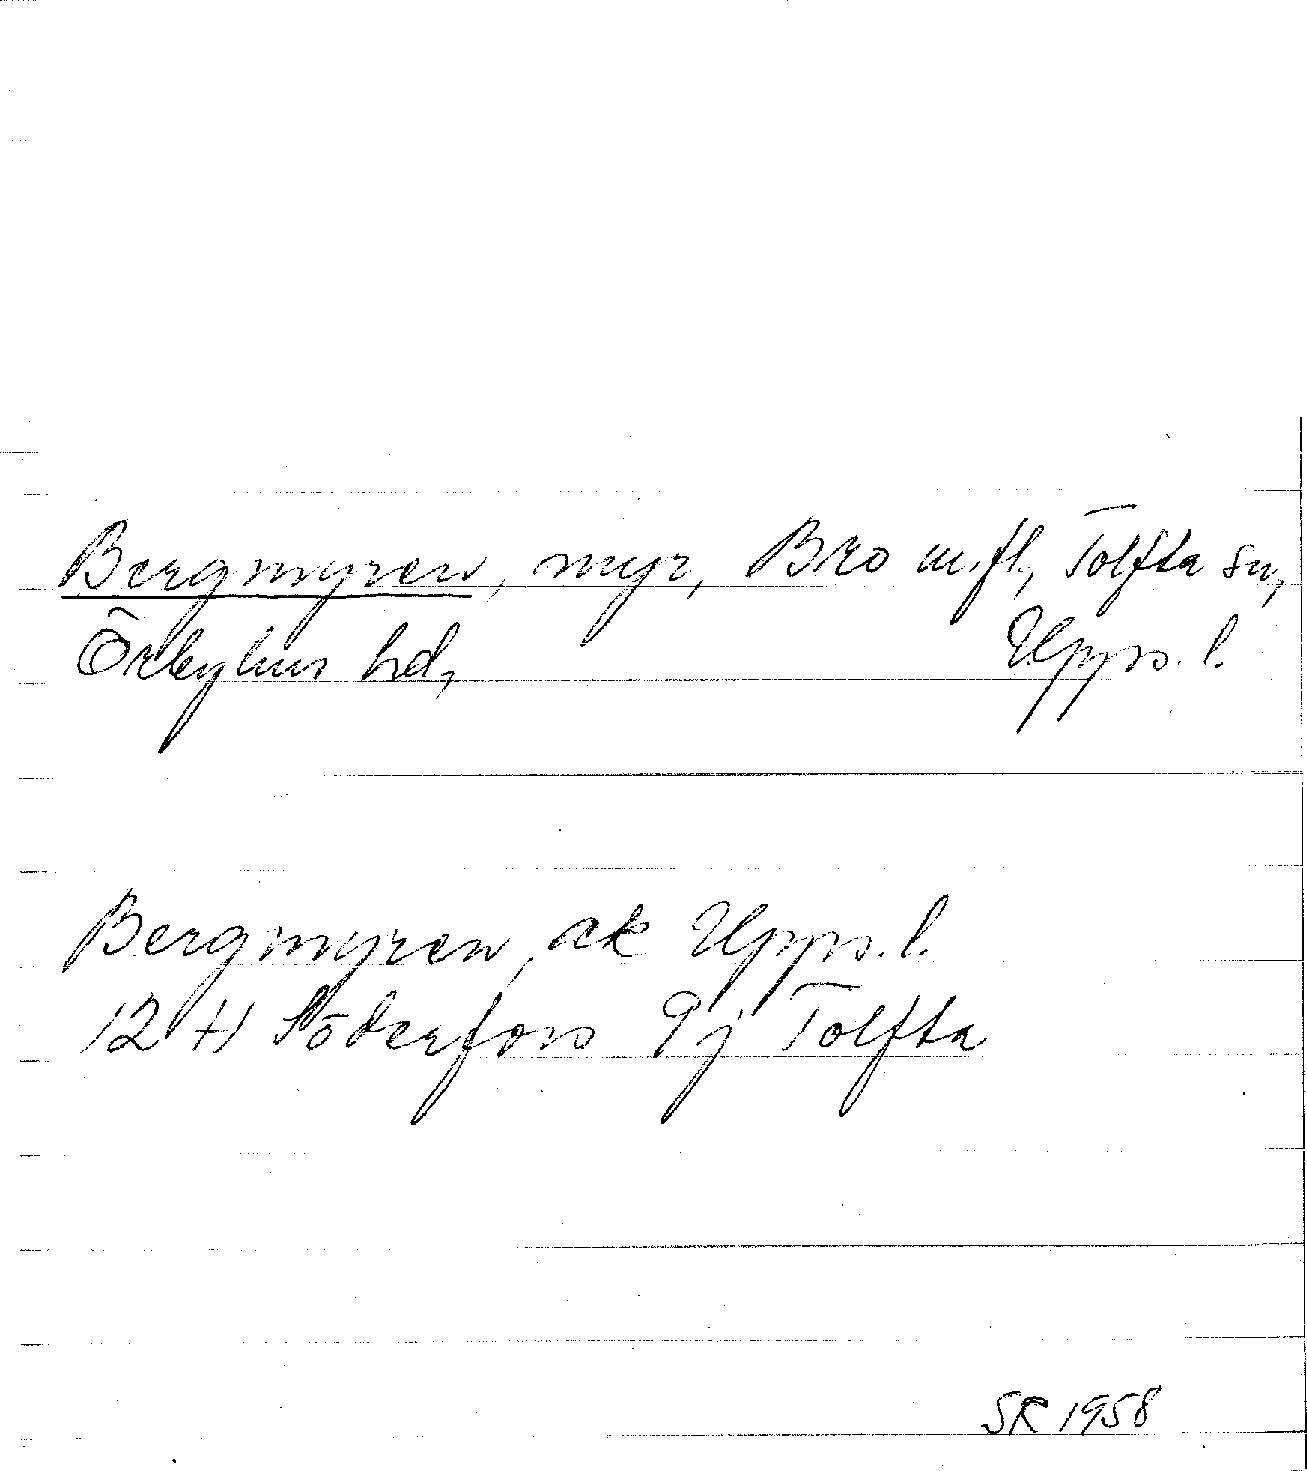 Bergmyren, myr, Bro m.fl., Tolfta sn,
Örbyhus hd, Upps. l.
Bergmyren, ek Upps. l.
12 H Söderfors 9j Tolfta
SR 1958